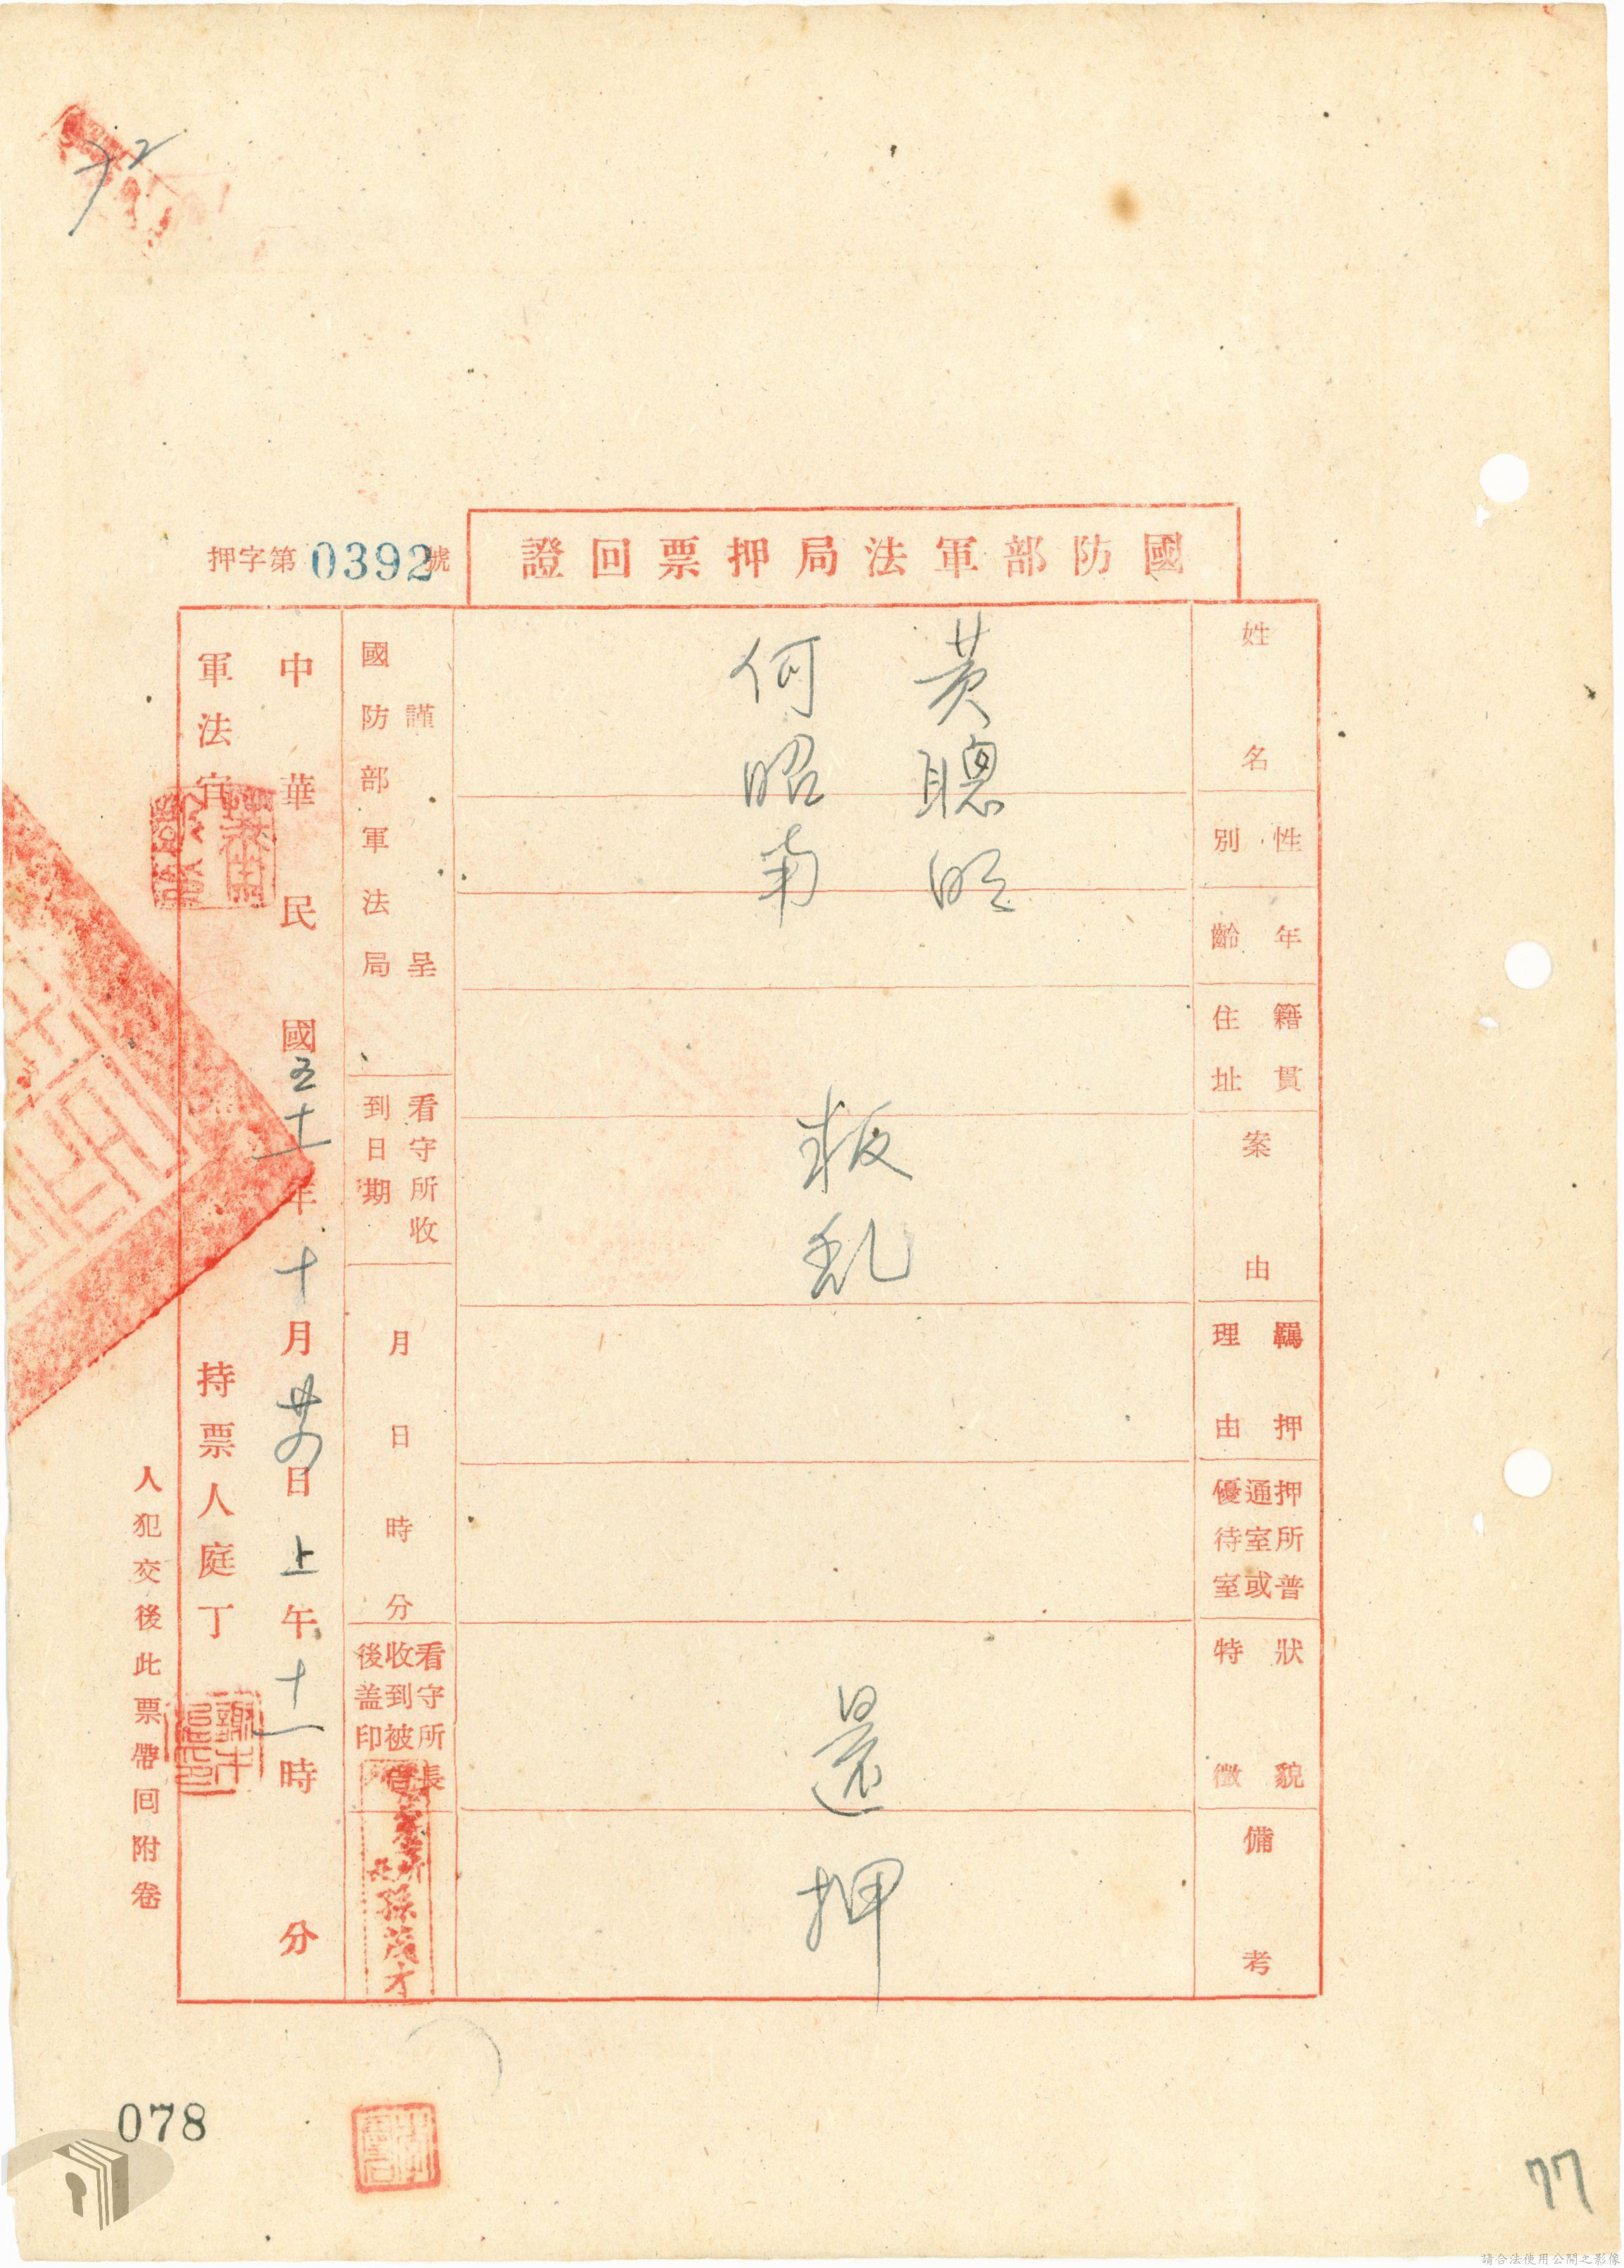 國防部軍法局押票回證
押字第0392號
姓名
黃聰明
何昭南
性別
年齡
籍貫住址
案由
叛乱
羈押理由
押所普通室或優待室
狀貌特徵
備考
還押
謹呈
國防部軍法局
看守所收到日期
月日時分
看守所長收到被告後盖印
孫茂才
中華民國五十一年十月廿四日上午十一時分
軍法官
持票人庭丁
人犯交後此票帶回附卷
078
77
請合法使用公開之影像